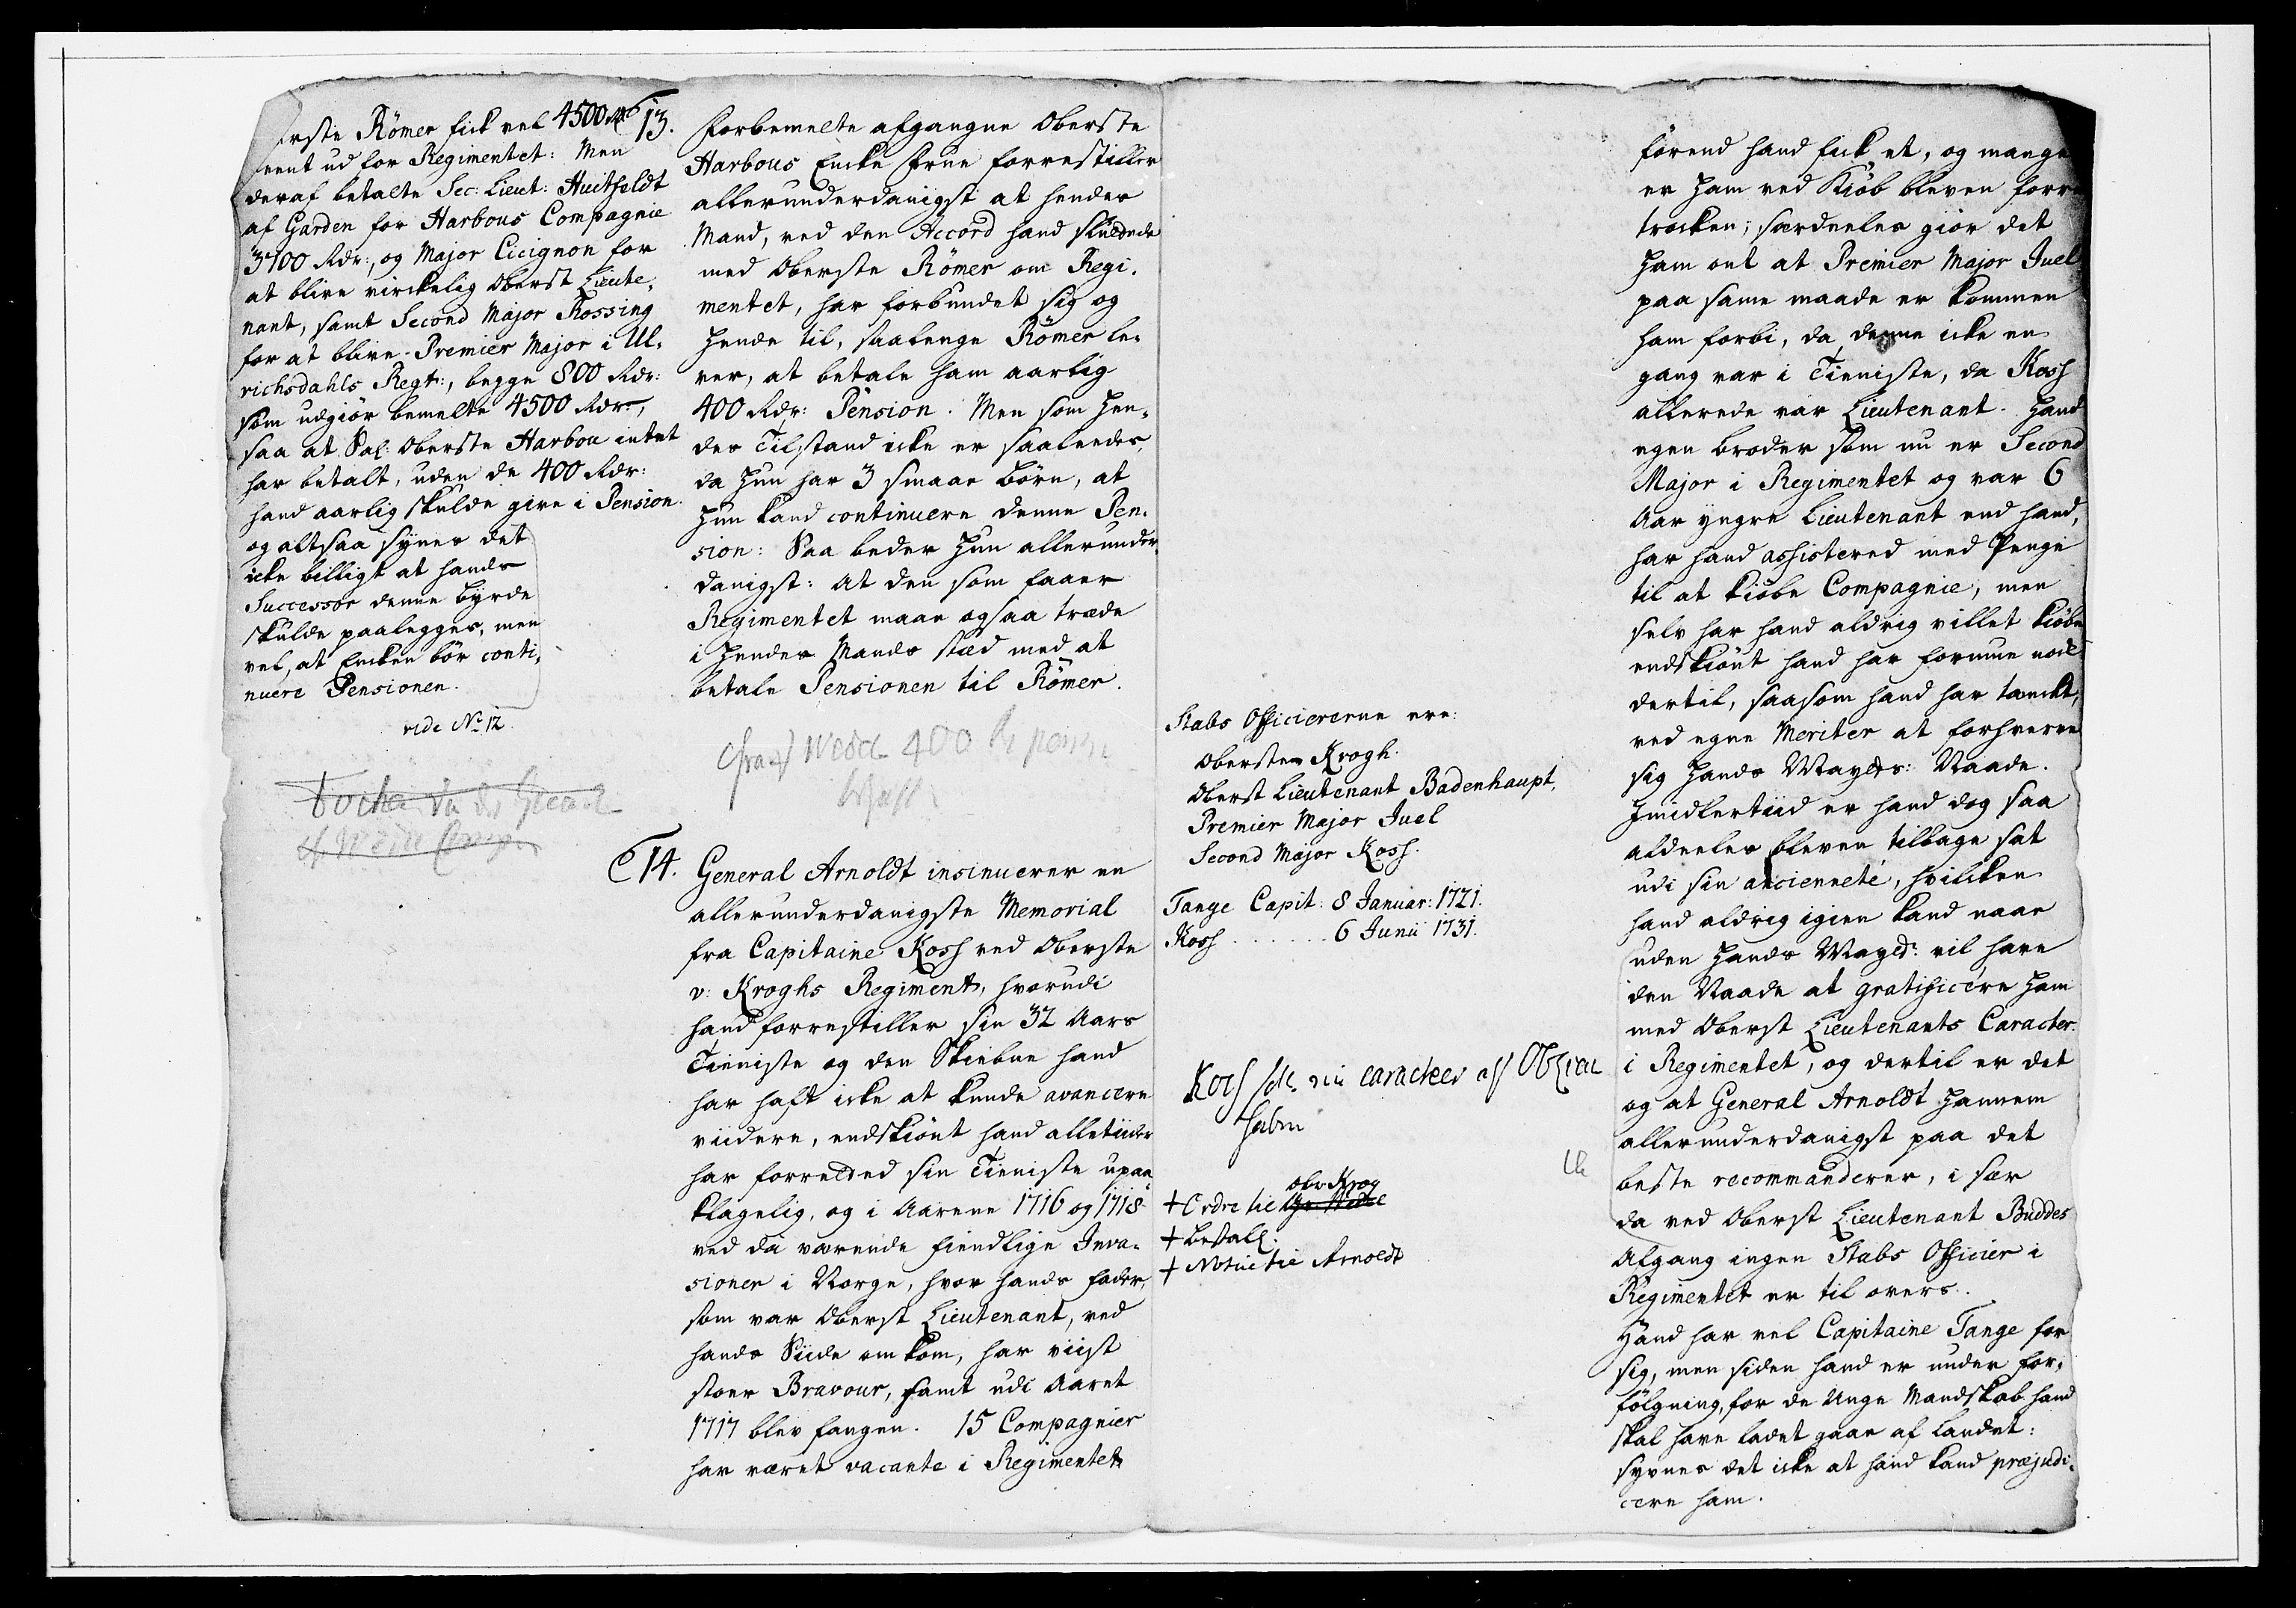 Römer fick vel 4500 Rdr
ud for Regimentet: Men
deraf betalte Sec: Lieut: Huitfeldt
af Garden for Harbous Compagnie
3700 Rdr:, og Major Cicignon for
at blive virckelig Oberst Lieute¬
nant, samt Second Major Rossing
for at blive Premier Major i Ul¬
richsdahls Regt:, begge 800 Rdr:
som udgiör bemelte 4500 Rdr:,
saa at Sal: Oberste Harbou intet
har betalt, uden de 400 Rdr:
hand aarlig skulde give i Pension.
og altsaa synes det
icke billigt at hands
Successor denne byrde
skulde paalegges, men
vel, at Encken bör conti¬
nuere Pensionen.
vide No 12
13.
Forbemelte afgangne Oberste
Harbous Encke Frue forrestiller
allerunderdanigst at hendes
Mand, ved den Accord hand sluttede
med Oberste Römer om Regi¬
mentet, har forbundet sig og
hende til, saalenge Römer le¬
ver, at betale ham aarlig
400 Rdr: Pension. Men som hen¬
des Tilstand icke er saaleedes,
da hun har 3 smaae börn, at
hun kand continuere denne Pen¬
sion: Saa beder hun allerunder¬
danigst: At den som faaer
Regimentet maae ogsaa træde
i hendes Mands stæd med at
betale Pensionen til Römer.
400
14.
General Arnoldt insinuerer en
allerunderdanigste Memorial
fra Capitaine Koss ved Oberste
v: Kroghs Regiment, hvorudi
hand forrestiller sin 32 Aars
Tieniste og den Skiebne hand
har haft icke at kunde avancere
viidere, endskiönt hand alletiider
har forretted sin Tieniste upaa
klagelig, og i Aarene 1716 og 1718
ved da værende fiendtlige Inva¬
sioner i Norge, hvor hands fader,
som var Oberst Lieutenant, ved
hands Siide omkom, har viist
stoer Bravour, samt udi Aaret
1717 blev fangen. 15 Compagnier
har været vacante i Regimentet
Stabs Officiererne ere:
Obersten Krogh.
Oberst Lieutenant Badenhaupt.
Premier Major Juel
Second Major Koss.
Tange Capit: 8 Januar: 1721.
Koss . . . . . . . 6 Junii 1731.
Koss caracter
haben
obr Krog
+ Ordre til
+ Bestall:
+ Notice til Arnoldt
förend hand fick et, og mange
er ham ved Kiöb bleven forre
trocken; særdeeles giör det
ham ont at Premier Major Juel
paa same maade er kommen
ham forbi, da denne icke en
gang var i Tieniste, da Koss
allerede var Lieutenant. Hands
egen broder som nu er Second
Major i Regimentet og var 6
Aar yngre Lieutenant end hand,
har hand assistered med Penge
til at kiöbe Compagnie, men
selv har hand aldrig villet kiöbe
endskiönt hand har formue nock
dertil, saasom hand har tænckt,
ved egne Meriter at forhverve
sig Hands Mayts: Naade.
Imidlertiid er hand dog saa
aldeeles bleven tilbage sat
udi sin ancienneté, hvilcken
hand aldrig igien kand naae
uden Hands Mayts: vil have
den Naade at gratificere ham
med Oberst Lieutenants Caracter.
i Regimentet, og dertil er det
og at General Arnoldt hannem
allerunderdanigst paa det
beste recommanderer, i sær
da ved Oberst Lieutenant Buddes
Afgang ingen Stabs Officier i
Regimentet er til overs.
Hand har vel Capitaine Tange for
sig, men siden hand er under for¬
fölgning, for de Unge Mandskab hand
skal have ladet gaae af Landet:
synes det icke at hand kand præjudi¬
cere ham.